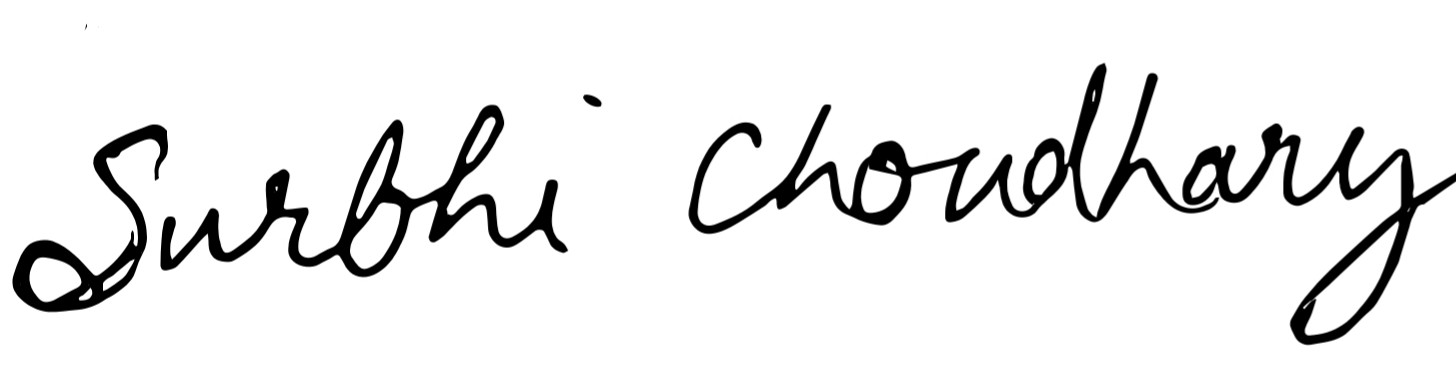 Surbhi Choudhary